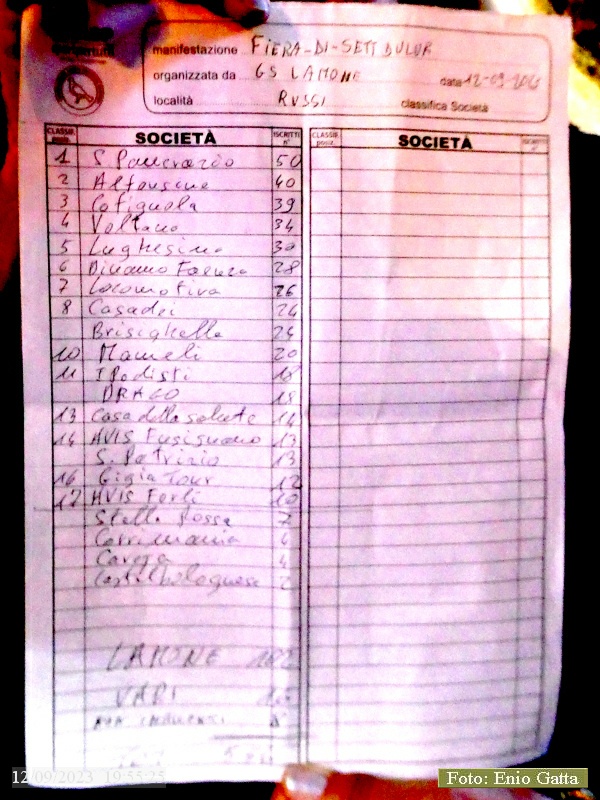 manifestazione FIERA-DI-SETT DULUR
organizzata da GS LAMONE data 12-09-2023
località RUSSI classifica Società
CLASSIF. posiz. SOCIETÀ ISCRITTI n° CLASSIF. posiz. SOCIETÀ
1 S. Pancrazio 50
2 Alfonsine 40
3 Cotignola 39
4 Voltana 34
5 Lughesina 30
6 Dinamo Faenza 28
7 Locomotiva 26
8 Casadei 24
Brisighella 24
10 Mameli 20
11 I Podisti 18
DRAGO 18
13 Casa della salute 14
14 AVIS Fusignano 13
S. Patrizio 13
16 Gigia Tour 12
17 AVIS Forlì 10
Stella Rossa 7
Corrimania
Caveja 4
Castelbolognese 2
LAMONE
VARI
12/09/2023 19:55:25
Foto: Enio Gatta